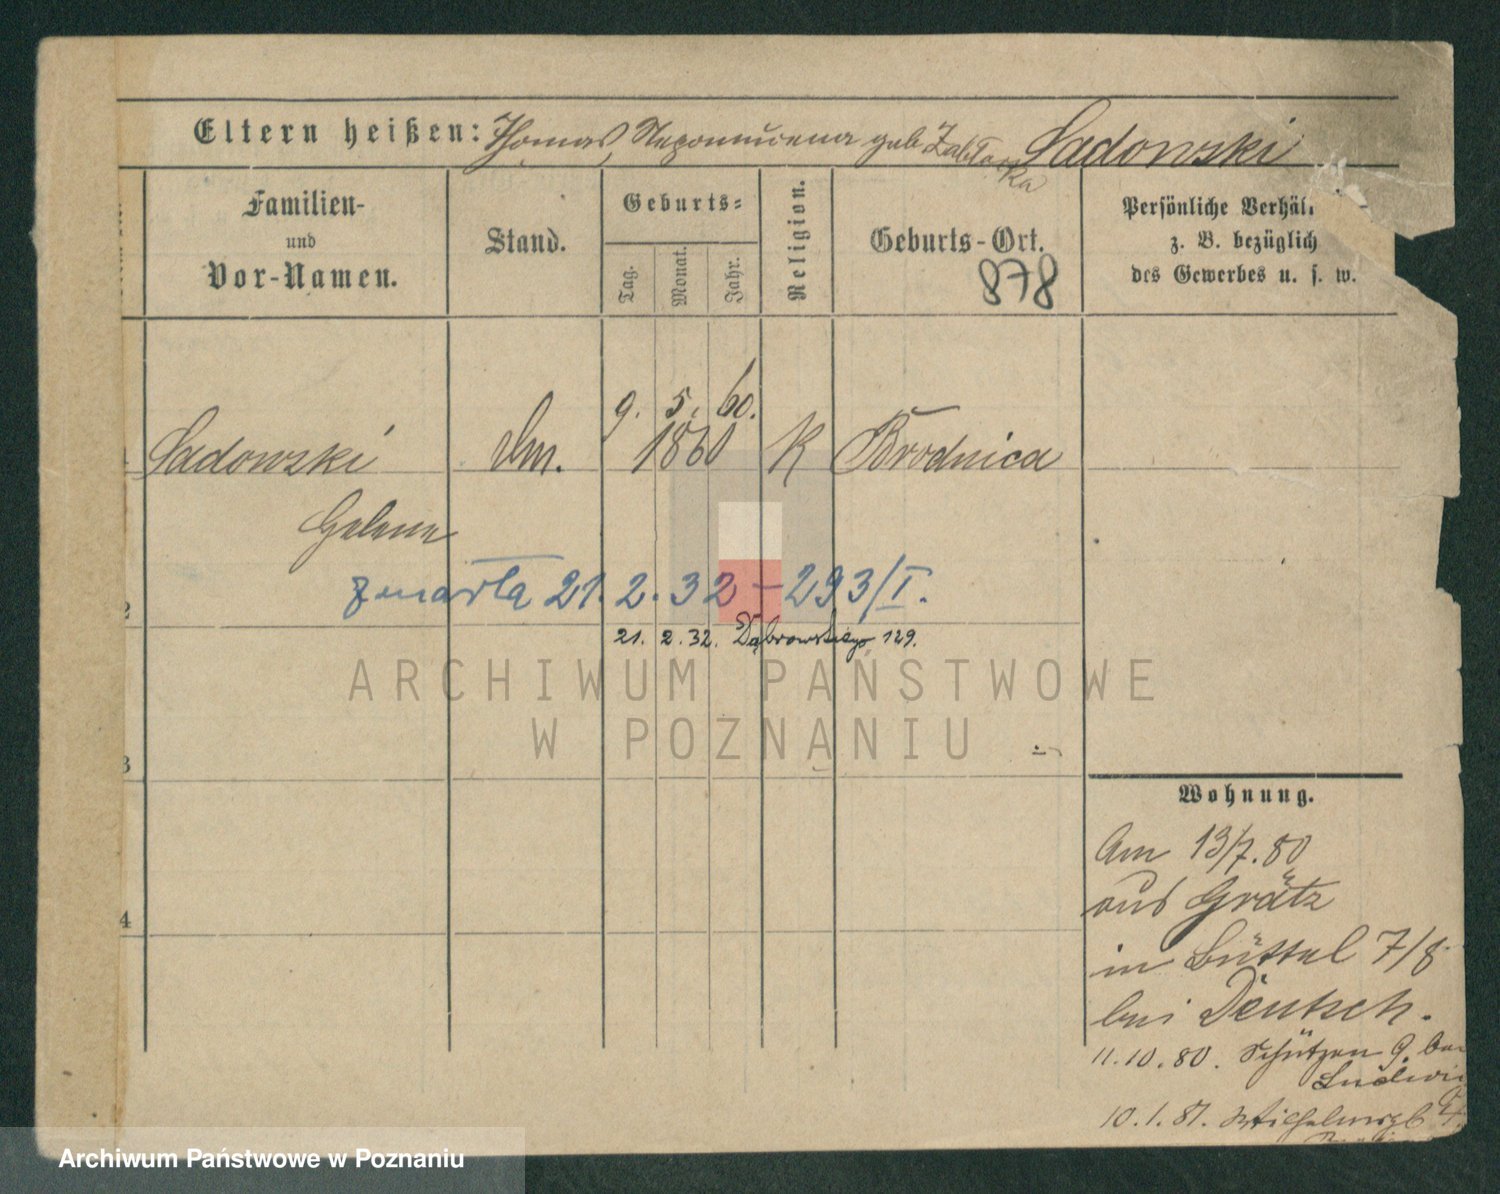 Eltern heißen: Thomas, Nepomucena geb Sadowski
Familien-
und
Vor-Namen.
Stand.
Geburts-
Tag.
Monat.
Jahr.
Religion.
Geburts-Ort.
878
Persönliche Verhäl
z. B. bezüglich
des Gewerbes u. s. w.
9. 5. 60.
Sadowski 1860 K Brodnica
Helena
2 zmarła 21.2.32 – 293/I.
21. 2.32. Dąbrowskiego 129.
ARCHIWUM PAŃSTWOWE
W POZNANIU
3
Wohnung.
Am 13/7.80
aus Grätz
4
in Büttel 7/8
bei Deutsch.
11.10.80. Schützen 9. bei
10.1.81.
Archiwum Państwowe w Poznaniu